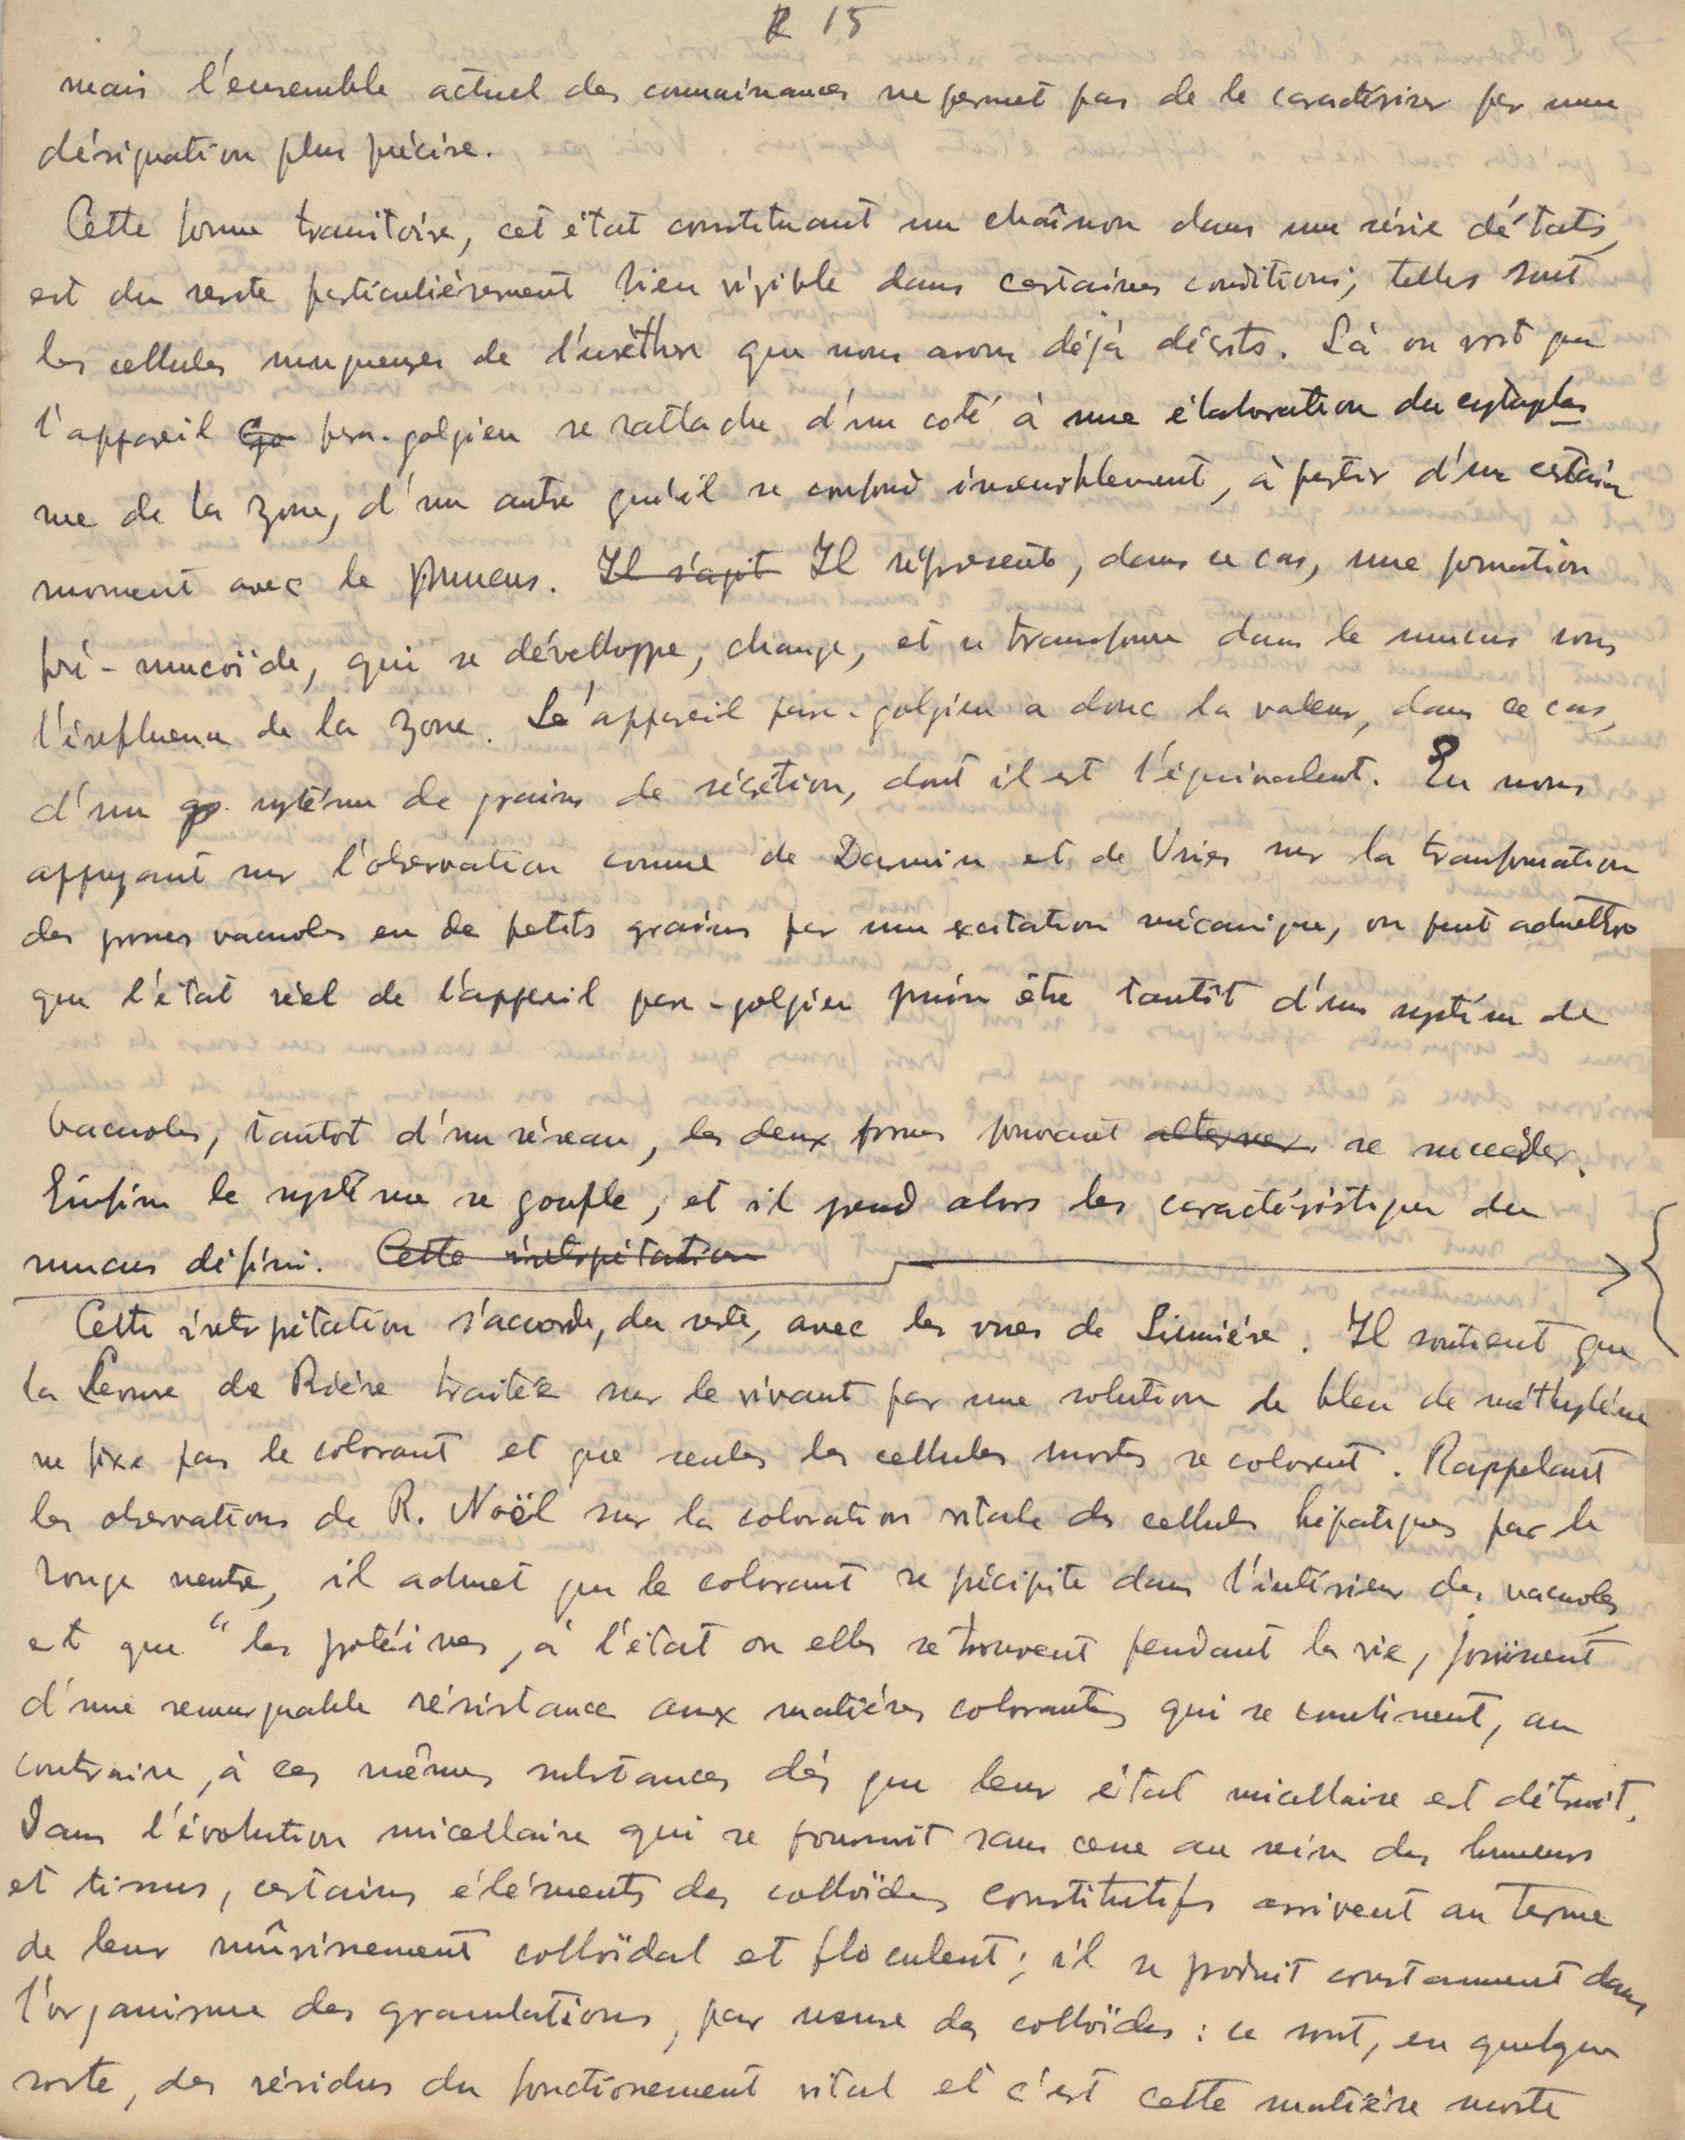 R 15
mais l'ensemble actuel des connaissances ne permet pas de le caractériser par une
désignation plus précise.
Cette forme transitoire, cet état constituant un chaînon dans une série d'états,
est du reste particulièrement bien visible dans certaines conditions; telles sont
les cellules muqueuses de l'urèthre que nous avons déjà décrits. Là on voit que
l'appareil para-golgien se rattache d'un coté à une élaboration du cytoplas
me de la zone, d'un autre qu'il se confond insensiblement, à partir d'un certain
moment avec le mucus. Il s'agit Il représente, dans ce cas, une formation
pré-mucoïde, qui se dévelloppe, change, et se transforme dans le mucus sous
l'influence de la zone. L'appareil para-golgien a donc la valeur, dans ce cas,
d'un système de grains de sécrétion, dont il est l'équivalent. En nous
appuyant sur l'observation connue de Darwin et de Vries sur la transformation
des grosses vacuoles en de petits grains par une excitation mécanique, on peut admettre
que l'état réel de l'appareil para-golgien puisse être tantôt d'un système de
vacuoles, tantot d'un réseau, les deux formes pouvant alterner se succéder.
Enfin le système se gonfle, et il prend alors les caractéristiques du
mucus défini. Cette interprétation
Cette interprétation s'accorde, du reste, avec les vues de Lumière. Il soutient que
la Levure de Bière traitée sur le vivant par une solution de bleu de méthylène
ne fixe pas le colorant et que seules les cellules mortes se colorent. Rappelant
les observations de R. Noël sur la coloration vitale des cellules hépatiques par le
rouge neutre, il admet que le colorant se précipite dans l'intérieur des vacuoles
et que "les protéines, à l'état ou elles se trouvent pendant la vie, jouissent
d'une remarquable résistance aux matières colorantes qui se combinent, au
contraire, à ces mêmes substances dès que leur état micellaire est détruit.
Dans l'évolution micellaire qui se poursuit sans cesse au sein des humeurs
et tissus, certains éléments des colloïdes constitutifs arrivent au terme
de leur mûrissement colloïdal et floculent; il se produit constamment dans
l'organisme des granulations, par usure des colloïdes: ce sont, en quelque
sorte, des résidus du fonctionement vital et c'est cette matière morte